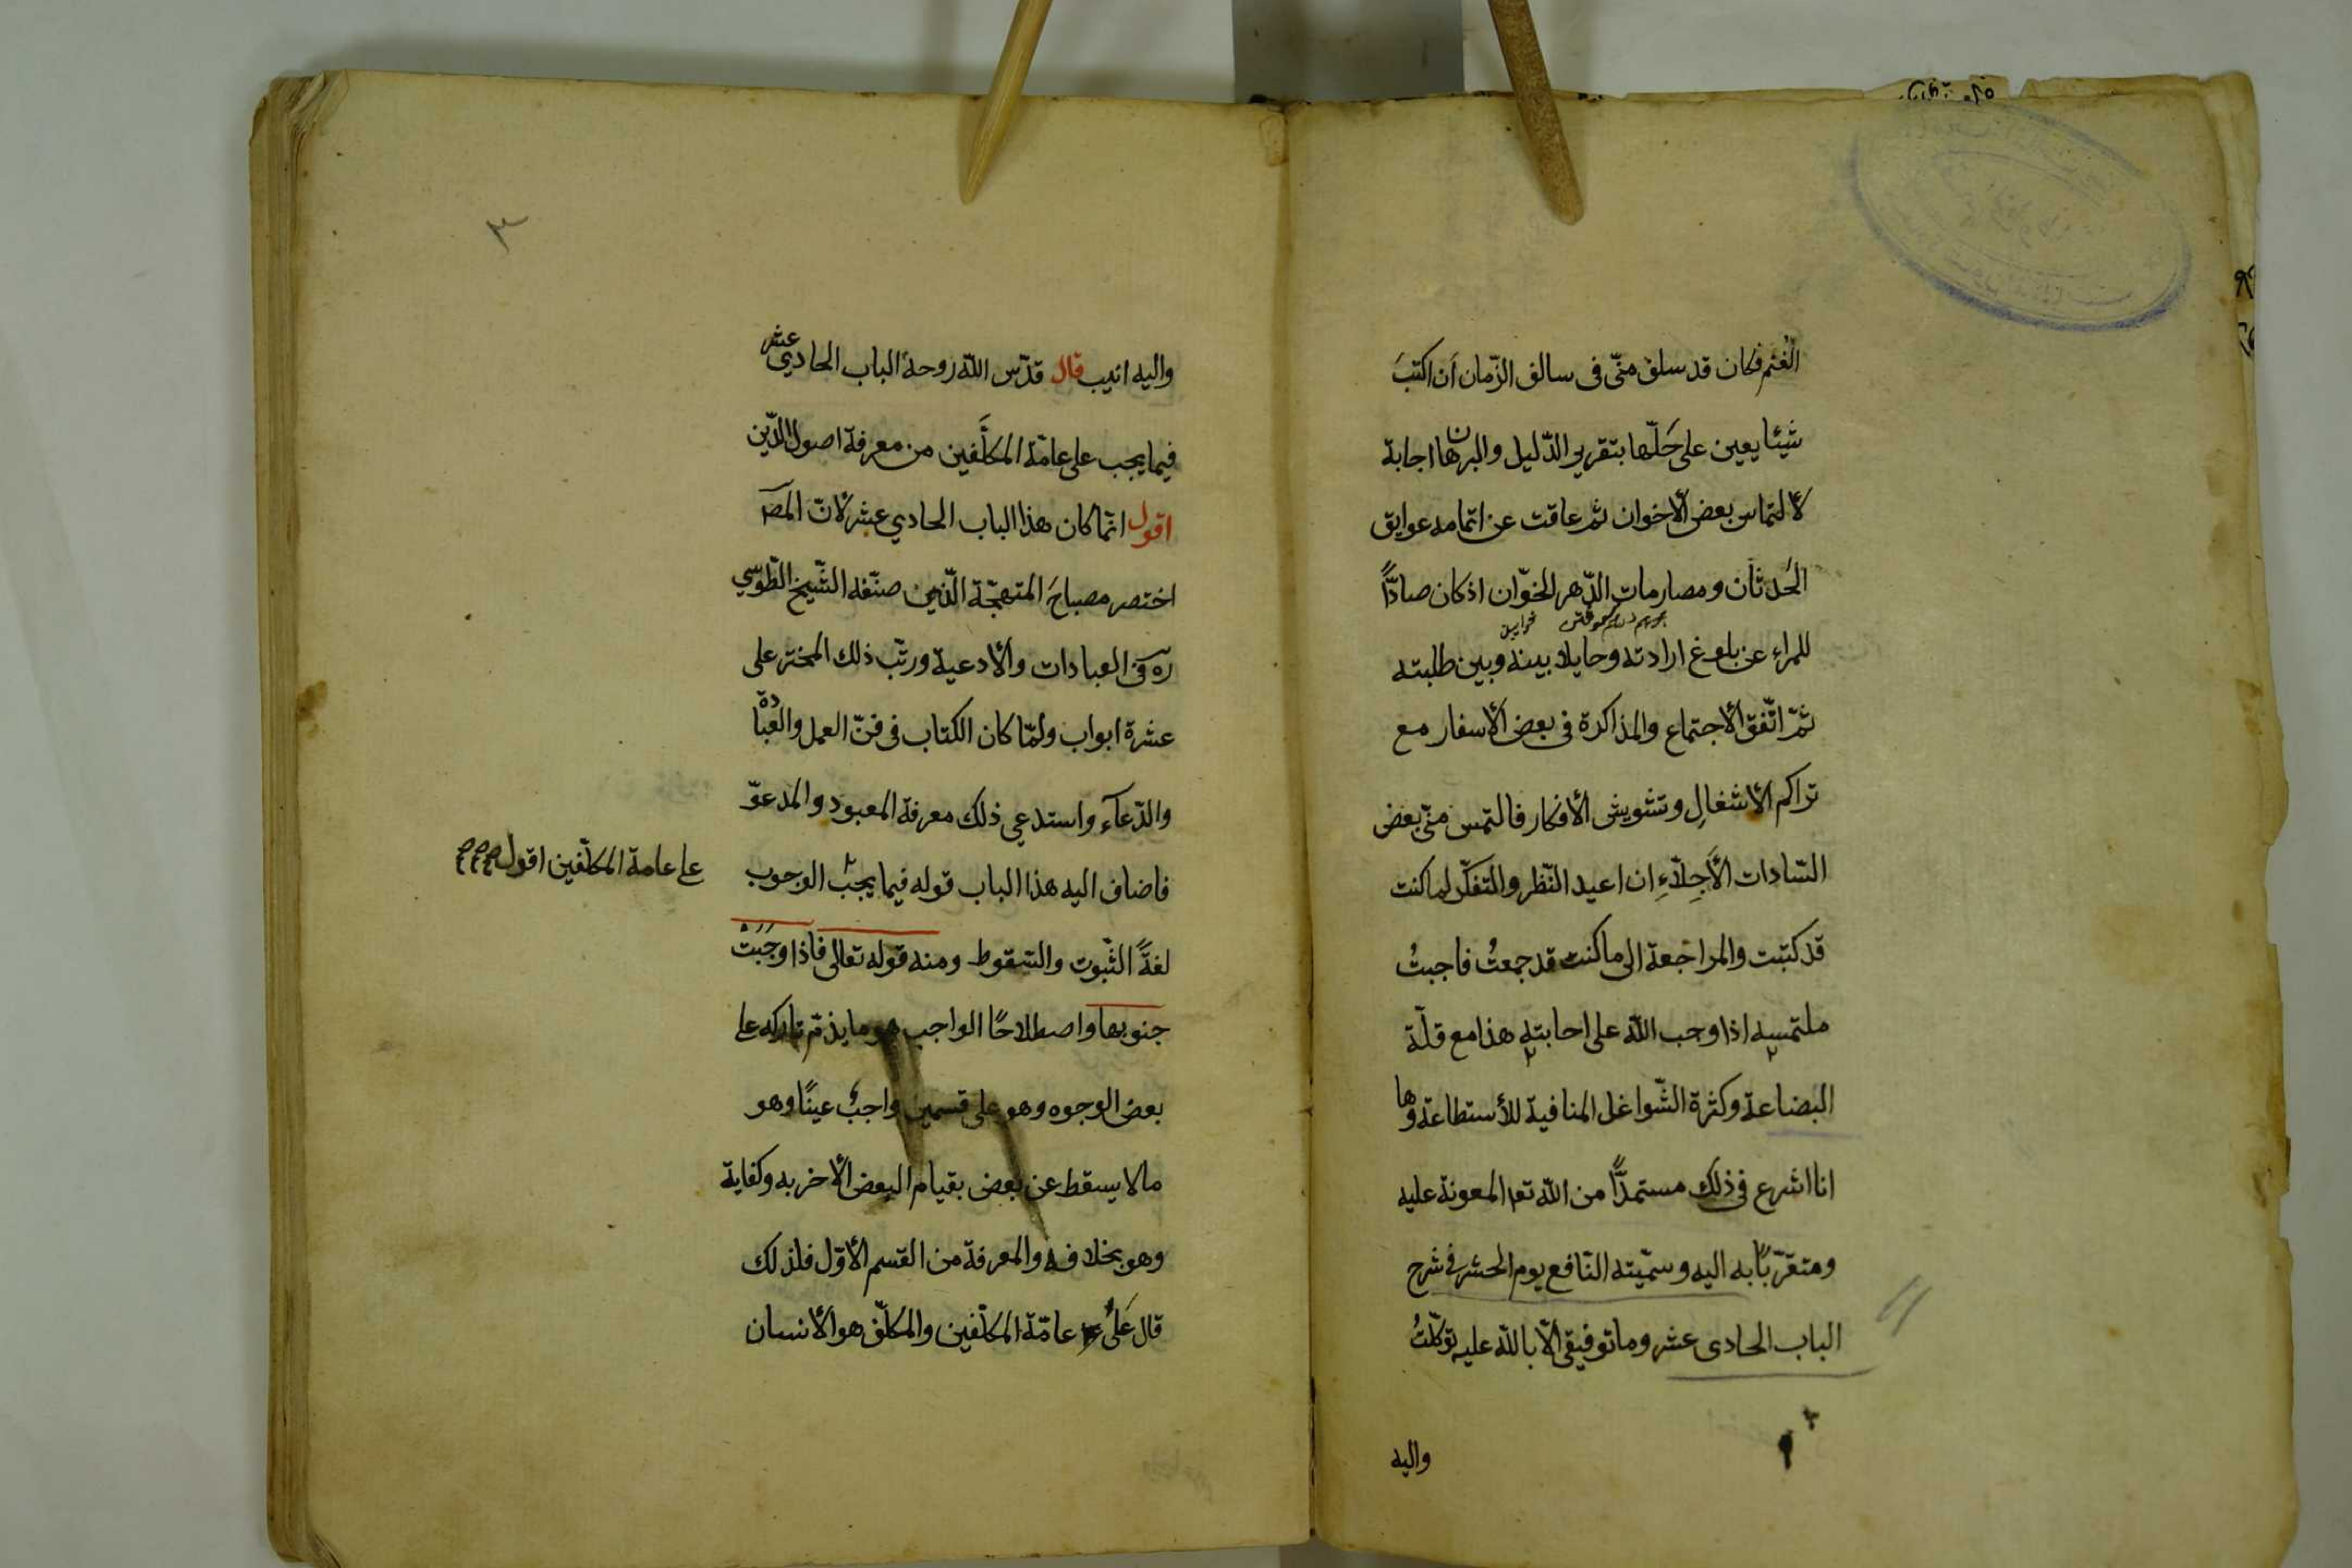 الغُنْم فكان قد سلف منّى فى سالف الزّمان اَن اكتبَ
شيئا يعين على حَلّها بتقرير الدّليل والبرهان اجابة
لالتماس بعض الأخوان ثم عاقت عن اتمامه عوايق
الحَدثَان ومصارمات الدّهر الخوّان اذ كان صادًّا
للمراء عن بلوغ ارادته وحايلا بينه وبين طلبته
ثمّ اتّفق الأجتماع والمذاكرة فى بعض الأسفار مع
تراكم الأشغالِ وتشويش الأفكار فالتمس منّى بعض
السّادات الأَجِلّاءِ ان اعيد النّظر والتفكّر لما كنت
قد كتبت والمراجعة الى ما كنت قد جمعتُ فاجبتُ
ملتمسه اذا وجب الله على اجابته هذا مع قلّة
البضاعة وكثرة الشّواغل المنافية للأستطاعة وها
انا اشرع فى ذلك مستمدًّا من الله تعا المعونة عليه
ومتقرّبًا به اليه وسمّيته النّافع يوم الحشر فى شرح
الباب الحادى عشر وما توفيقى الّا بالله عليه توكّلتُ
واليه
٣
واليه انيب قال قدّس الله روحهُ الباب الحادي عشر
فيما يجب على عامّة المكلَّفين من معرفة اصول الدّين
اقول انّما كان هذا الباب الحادي عشر لأنّ المصَ
اختصر مصباحَ المتهجّة الّذين صنّفه الشّيخ الطّوسي
ره فى العبادات والأدعية ورتّب ذلك المختر على
عشرة ابواب ولمّا كان الكتاب فى فنّ العمل والعبادة
والدّعآء واستدعي ذلك معرفة المعبود والمدعوّ
فاضاف اليه هذا الباب قوله فيما يجب الوجوب
على عامة المكلّفين اقول
لغةً الثّبوت والسّقوط ومنه قوله تعالى فاذا وَجَبَتْ
جنوبها واصطلاحًا الواجب هو ما يذمّ تاركه على
بعض الوجوه وهو على قسمين واجبٌ عينًا وهو
ما لا يسقط عن بعض بقيام البعض الأخر به وكفاية
وهو بخلافه والمعرفة من القسم الأوّل فلذلك
قال عَلى عامّة المكلّفين والمكلّف هو الأنسان